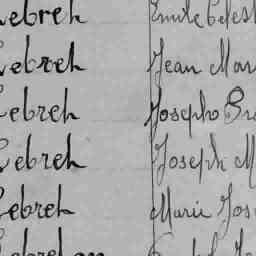 Lebreh Emile Celest
Lebreh Jean Mar
Lebreh Joseph
Lebreh Joseph M
Lebreh Marie Jos